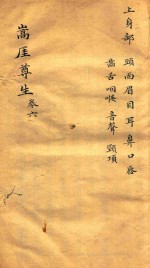 上身部 頭面眉目耳鼻口唇
齒舌咽喉 音聲 頸項
嵩厓尊生 卷六